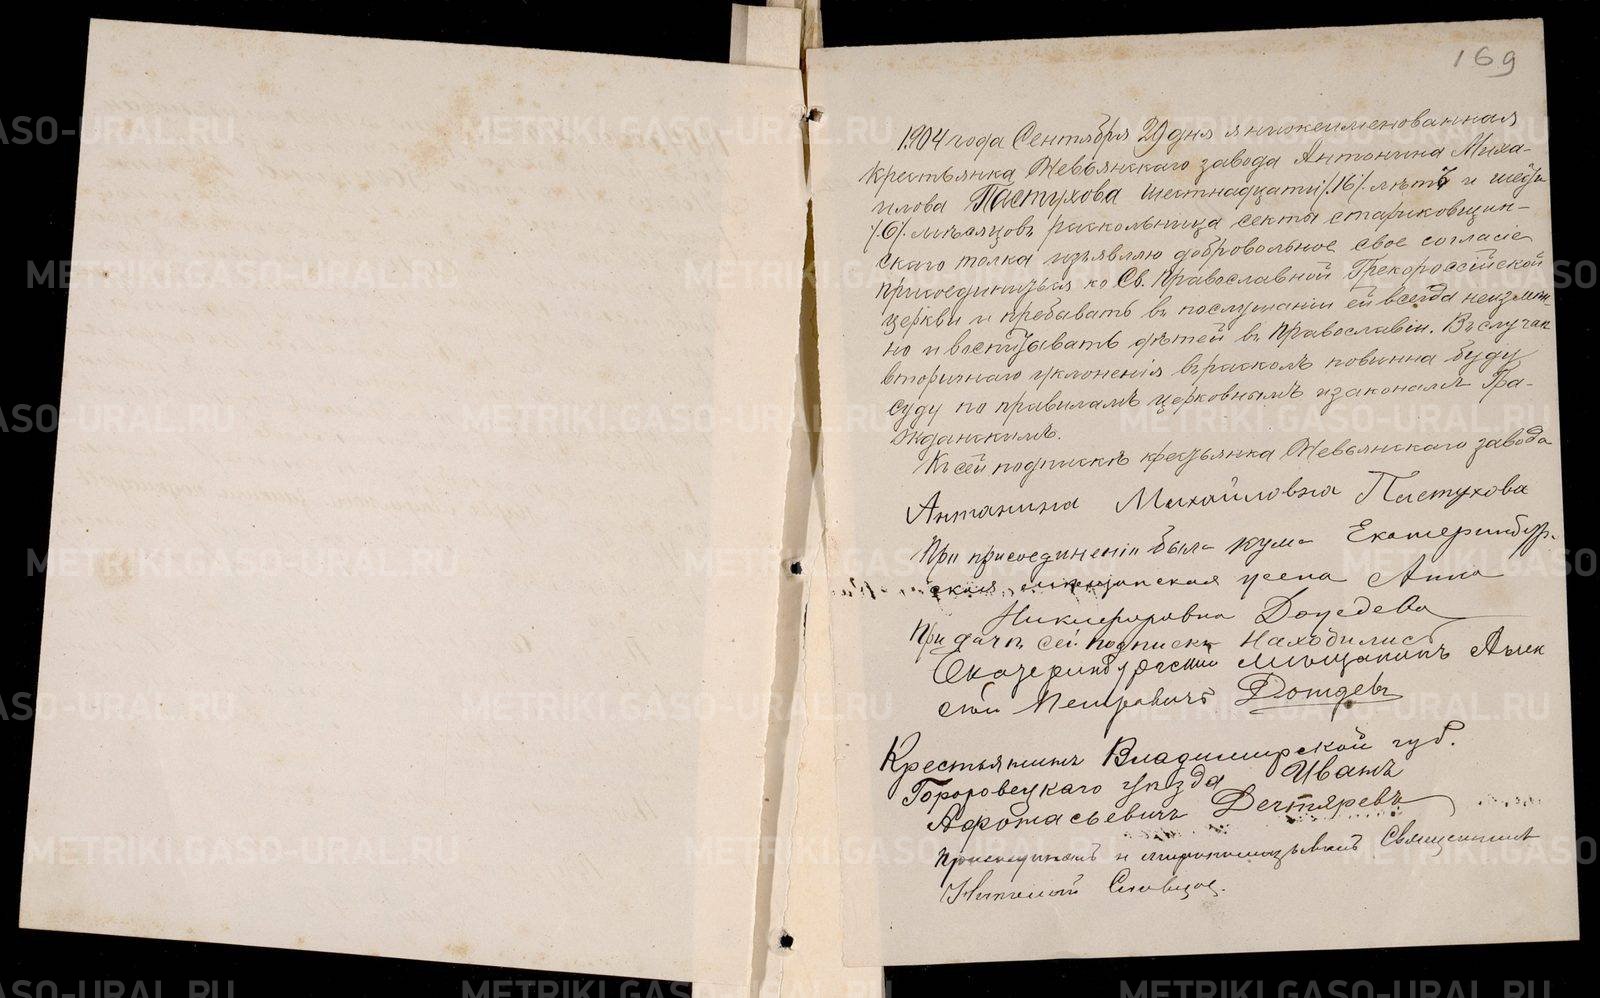 169
1904 года Сентября 29 дня я нижеименованная
крестьянка Невьянскаго завода Антонина Миха-
илова Пастухова шестнадцати /.16/. лѣтъ и шести
/.6/. мѣсяцовъ раскольница секты стариковщин-
скаго толка изъявляю добровольное свое согласіе
присоединиться ко Св. Православной Грекороссійской
церкви и пребывать въ послушаніи ей всегда неизмѣн-
но и воспитывать дѣтей въ Православіи. Въ случаи
вторичнаго уклоненія въ расколъ повинна буду
суду по правиламъ церковнымъ и законамъ Гра-
жданскимъ.
Къ сей подпискѣ крестьянка Невьянскаго завода
Антанина Михайловна Пастухова
При присоединеніи была кума Екатеринбур-
ская мещанская жена Анна
Никифоровна
При дачѣ сей подписки находились
Екатеринбургский мѣщанинъ Алек
сѣй Петровичъ
Крестьянинъ Владимирской губ.
Гороховецкаго уѣзда Иванъ
Афонасьевичъ Дехтяревъ
Присоединялъ и миропомазывалъ Священникъ
Словцов.